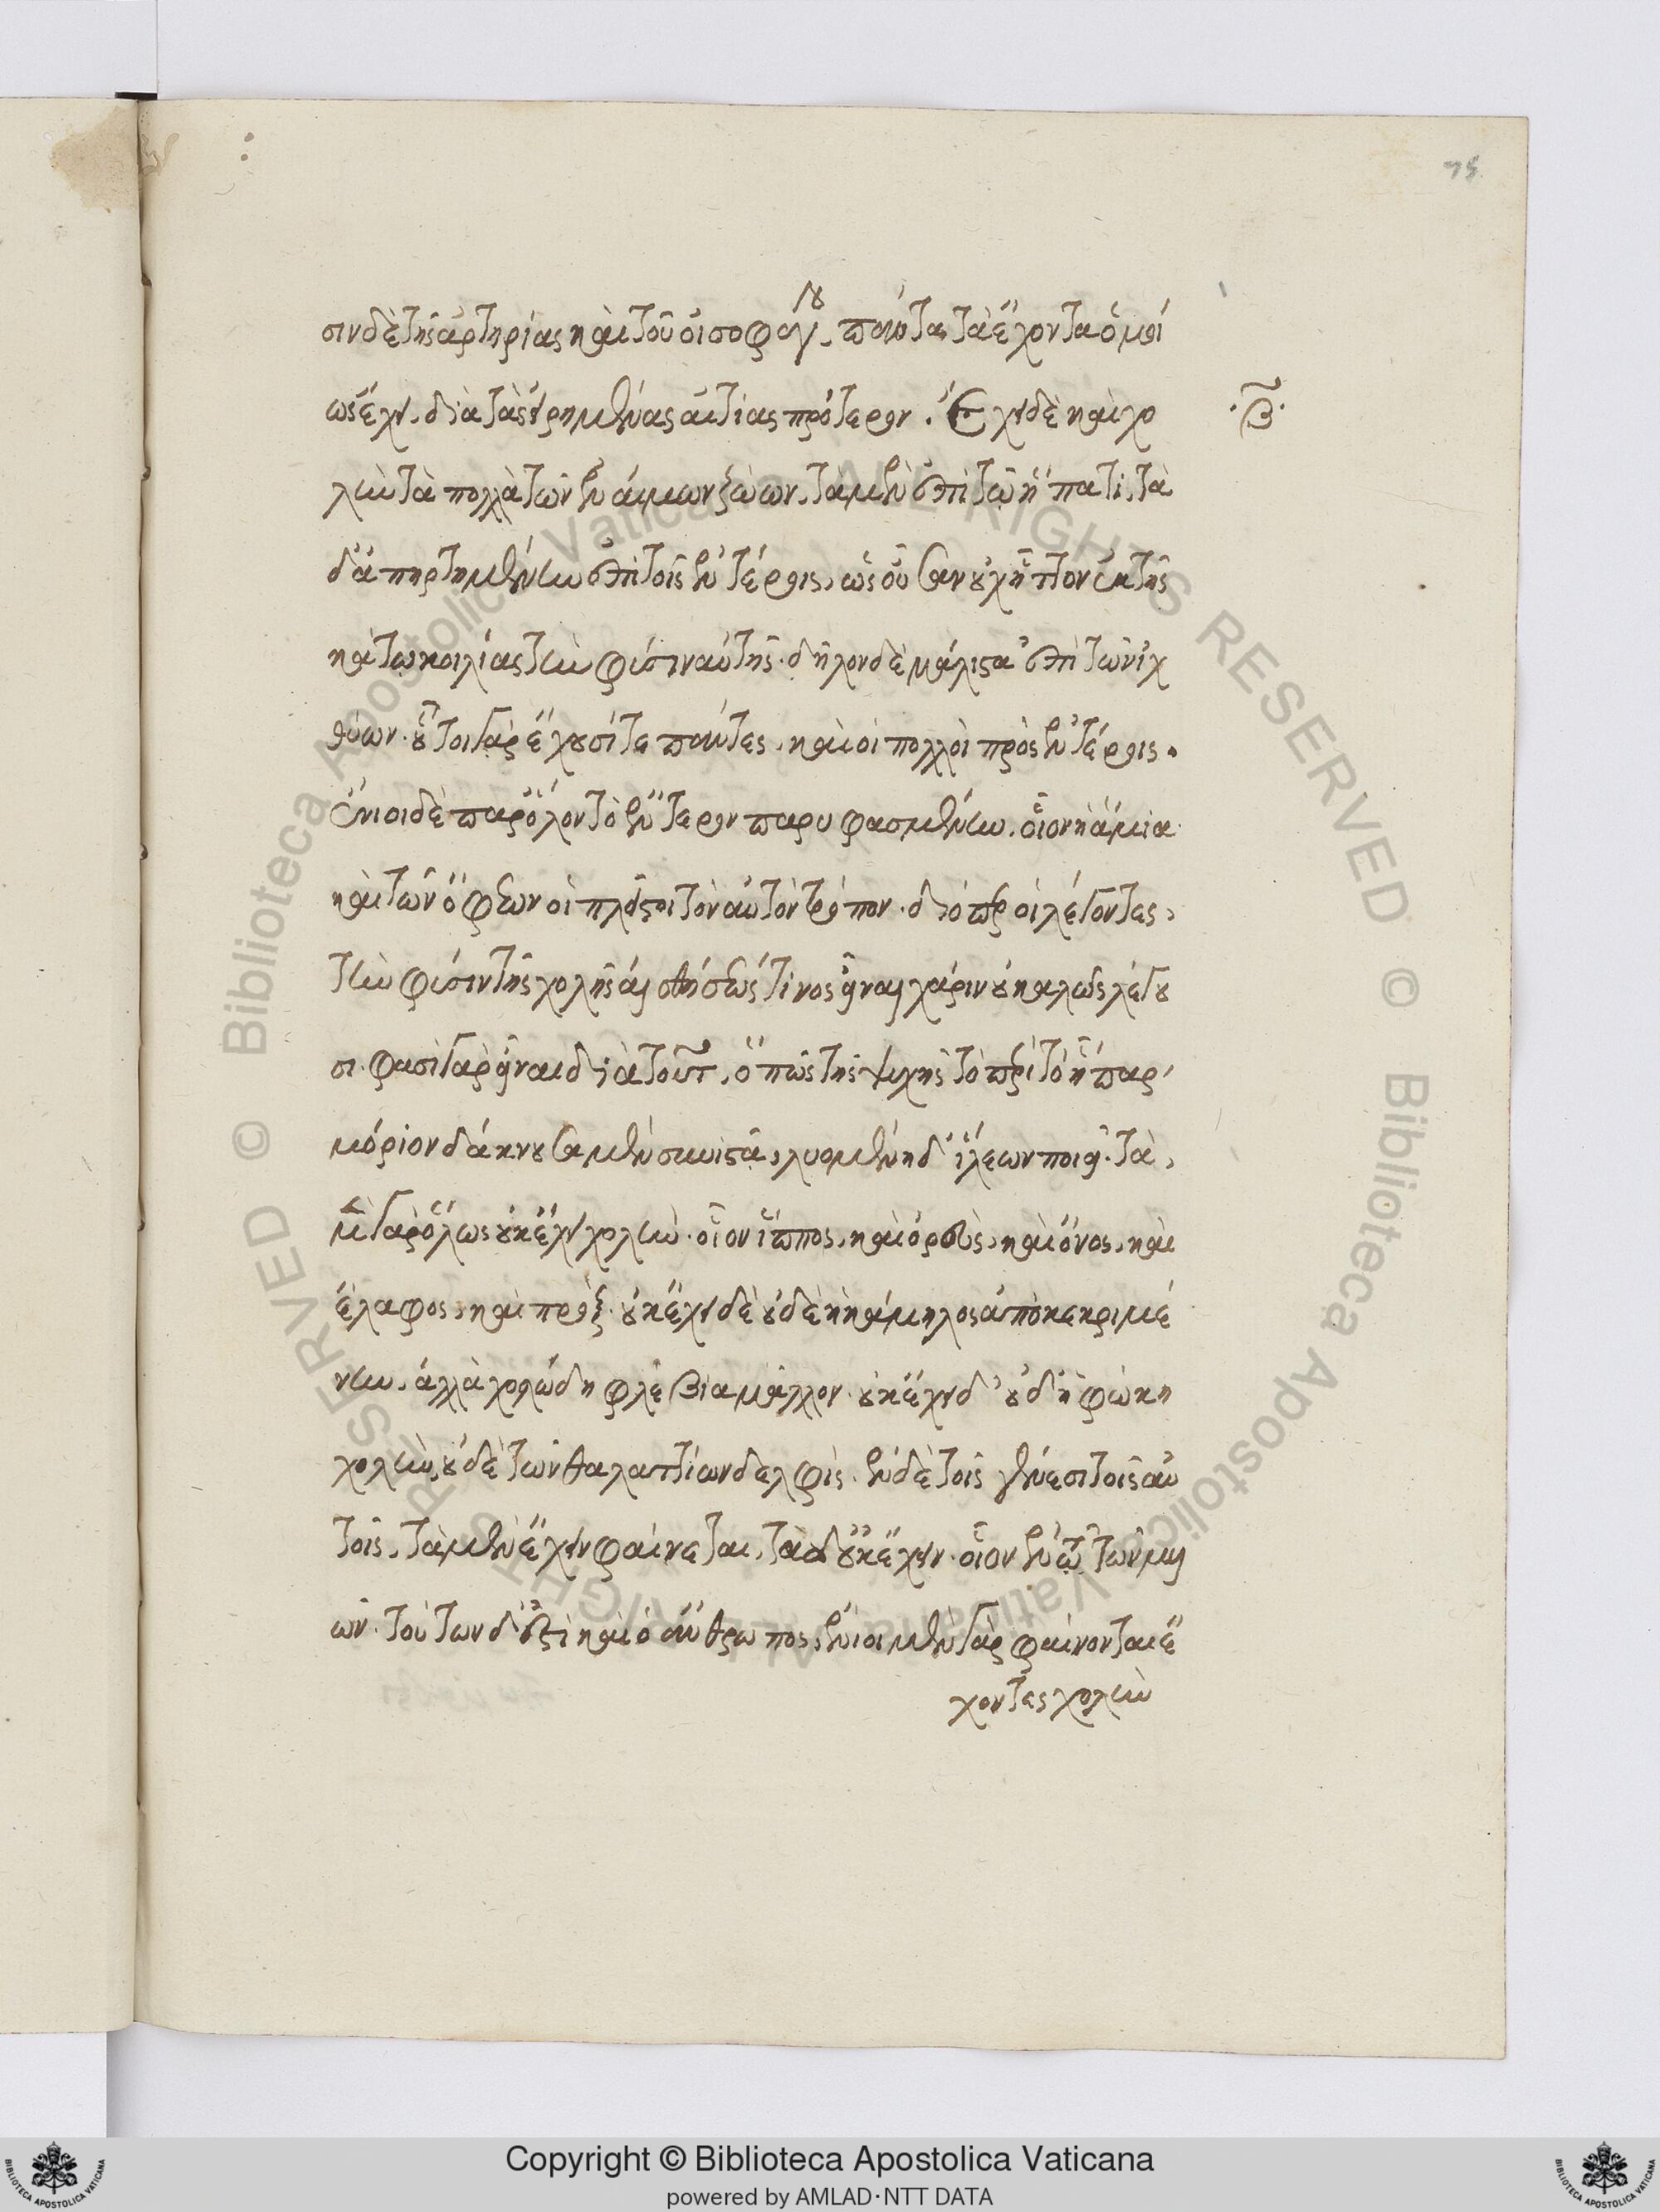 75
σιν δὲ τῆς ἀρτηρίας καὶ τοῦ οἰσοφάγου. πάντα τὰ ἔχοντα ὁμοί
ως ἔχει. διὰ τὰς εἰρημένας αἰτίας πρότερον. Ἔχει δὲ καὶ χο
·β·
λὴν τὰ πολλὰ τῶν ἐναίμων ζώων. τὰ μὲν ἐπὶ τῷ ἥπατι. τὰ
δ' ἀπηρτημένην ἐπὶ τοῖς ἐντέροις, ὡς οὖσαν οὐχ ἧττον ἐκ τῆς
κάτω κοιλίας τὴν φύσιν αὐτῆς. δῆλον δὲ μάλιστα ἐπὶ τῶν ἰχ
θύων. οὗτοι γὰρ ἔχουσί τε πάντες, καὶ οἱ πολλοὶ πρὸς ἐντέροις.
ἔνιοι δὲ παρ' ὅλον τὸ ἔντερον παρυφασμένην. οἷον ἡ ἀμία
καὶ τῶν ὄφεων οἱ πλεῖστοι τὸν αὐτὸν τρόπον. διόπερ οἱ λέγοντες,
τὴν φύσιν τῆς χολῆς αἰσθήσεώς τινος εἶναι χάριν οὐ καλῶς λέγου
σι. φασὶ γὰρ εἶναι διὰ τοῦτ, ὅπως τῆς ψυχῆς τὸ περὶ τὸ ἧπαρ
μόριον δάκνουσα μὲν συνιστᾶ, λυομένη δ' ἵλεων ποιεῖ. τὰ
μὲν γὰρ ὅλως οὐκ ἔχει χολήν. οἷον ἵππος, καὶ ὀρεὺς, καὶ ὄνος, καὶ
ἔλαφος, καὶ πρόξ. οὐκ ἔχει δὲ οὐδὲ ἡ κάμηλος ἀποκεκριμέ
νην, ἀλλὰ χολώδη φλέβια μᾶλλον. οὐκ ἔχει δ' οὐδ' ἡ φώκη
χολὴν, οὐδὲ τῶν θαλαττίων δελφίς. ἐν δὲ τοῖς γένεσι τοῖς αὐ
τοῖς, τὰ μὲν ἔχειν φαίνεται, τὰ δ' οὐκ ἔχειν. οἷον ἐν τῷ τῶν μυ
ῶν. τούτων δ' ἐστὶ καὶ ὁ ἄνθρωπος, ἔνιοι μὲν γὰρ φαίνονται ἔ
χοντες χολὴν
Copyright © Biblioteca Apostolica Vaticana
powered by AMLAD·NTT DATA